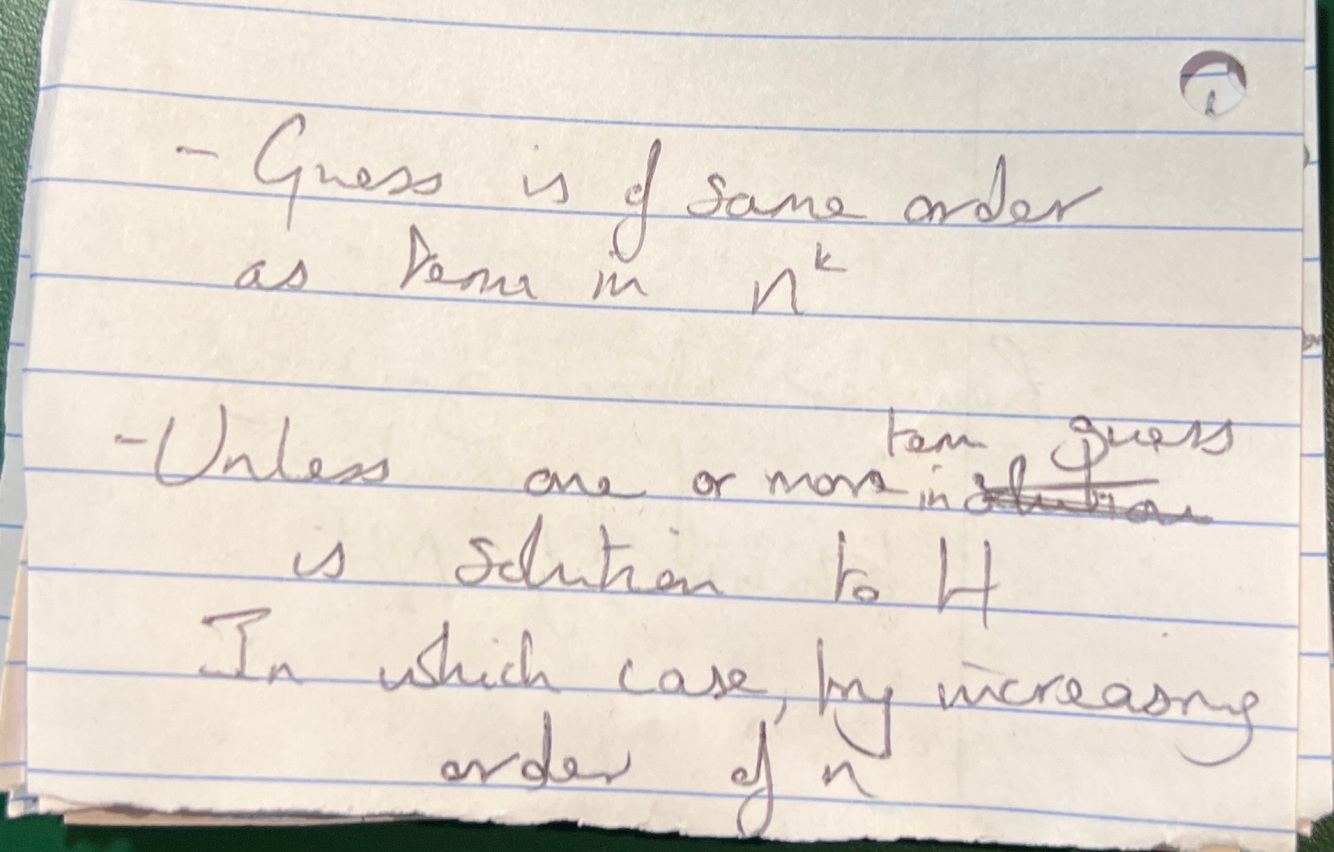 - Guess is of same order
as term in n^k
- Unless one or more term in ~~solution~~ guess
is solution to H
In which case, try increasing
order of n